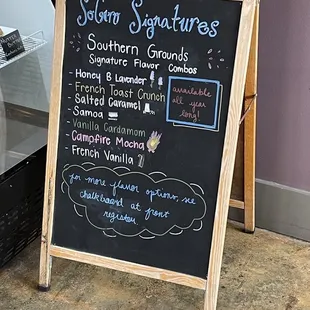 SoGro Signatures
Southern Grounds
Signature Flavor Combos
- Honey & Lavender
- French Toast Crunch
- Salted Caramel
- Samoa
- Vanilla Cardamom
- Campfire Mocha
- French Vanilla
available
all year
long!
for more flavor options, see
chalkboard at front
register